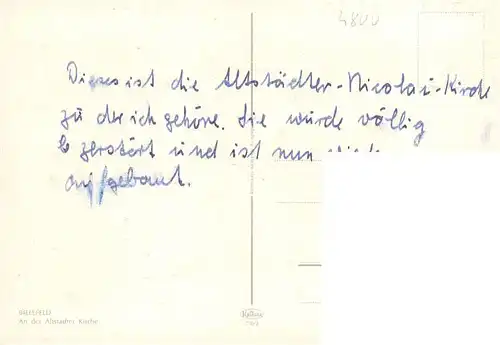 4800
Dieses ist die Altstädter-Nicolai-Kirche
zu der ich gehöre. Sie wurde völlig
zerstört und ist nun
aufgebaut.
BIELEFELD
An der Altstädter Kirche